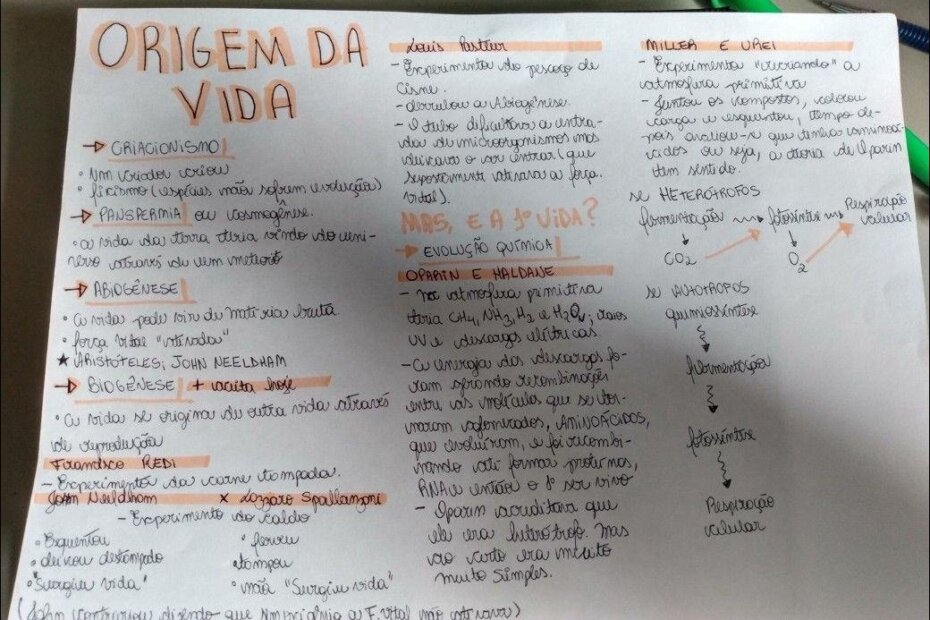 ORIGEM DA
VIDA
→ CRIACIONISMO
• Um criador criou
• fixismo (espécies não sofrem evolução)
→ PANSPERMIA ou cosmogênese.
• a vida da terra teria vindo do uni-
verso através de um meteoro
→ ABIOGÊNESE
• a vida pode vir de matéria bruta
• força vital "ativada"
★ ARISTÓTELES; JOHN NEELDHAM
→ BIOGÊNESE + aceita hoje
• a vida se origina de outra vida através
de reprodução
Francisco REDI
- Experimento da carne tampada.
John Neeldham x Lazzaro Spallanzani
- Experimento do caldo
• Esquentou
• deixou destampado
• "Surgiu vida"
• ferveu
• tampou
• não "Surgiu vida"
(John contrariou dizendo que a F. vital não ativava)
Louis Pasteur
- Experimento do pescoço de
cisne.
- derrubou a Abiogênese.
- O tubo dificultava a entra-
da de microorganismos mas
deixava o ar entrar (que
supostamente ativava a força
vital).
MAS, E A 1º VIDA?
→ EVOLUÇÃO QUÍMICA
OPARIN E HALDANE
- Na atmosfera primitiva
teria CH4, NH3, H2 e H2O; raios
UV e descargas elétricas
- a energia das descargas fo-
ram gerando recombinações
entre as moléculas que se tor-
naram AMINOÁCIDOS,
que evoluíram, e foi recombi-
nando até formar proteínas,
RNA e então o 1º ser vivo
- Oparin acreditava que
ele era heterótrofo. Mas
ao certo era muito
muito simples.
MILLER E UREI
- Experimento "recriando" a
atmosfera primitiva
- Juntou os compostos, colocou
carga e esquentou, tempo de-
pois avaliou-se que tinha aminoá-
cidos ou seja, a teoria de Oparin
tem sentido.
se HETERÓTROFOS
fermentação → fotossíntese → Respiração
celular
CO2 O2
se AUTÓTROFOS
quimiossíntese
fermentação
fotossíntese
Respiração
celular